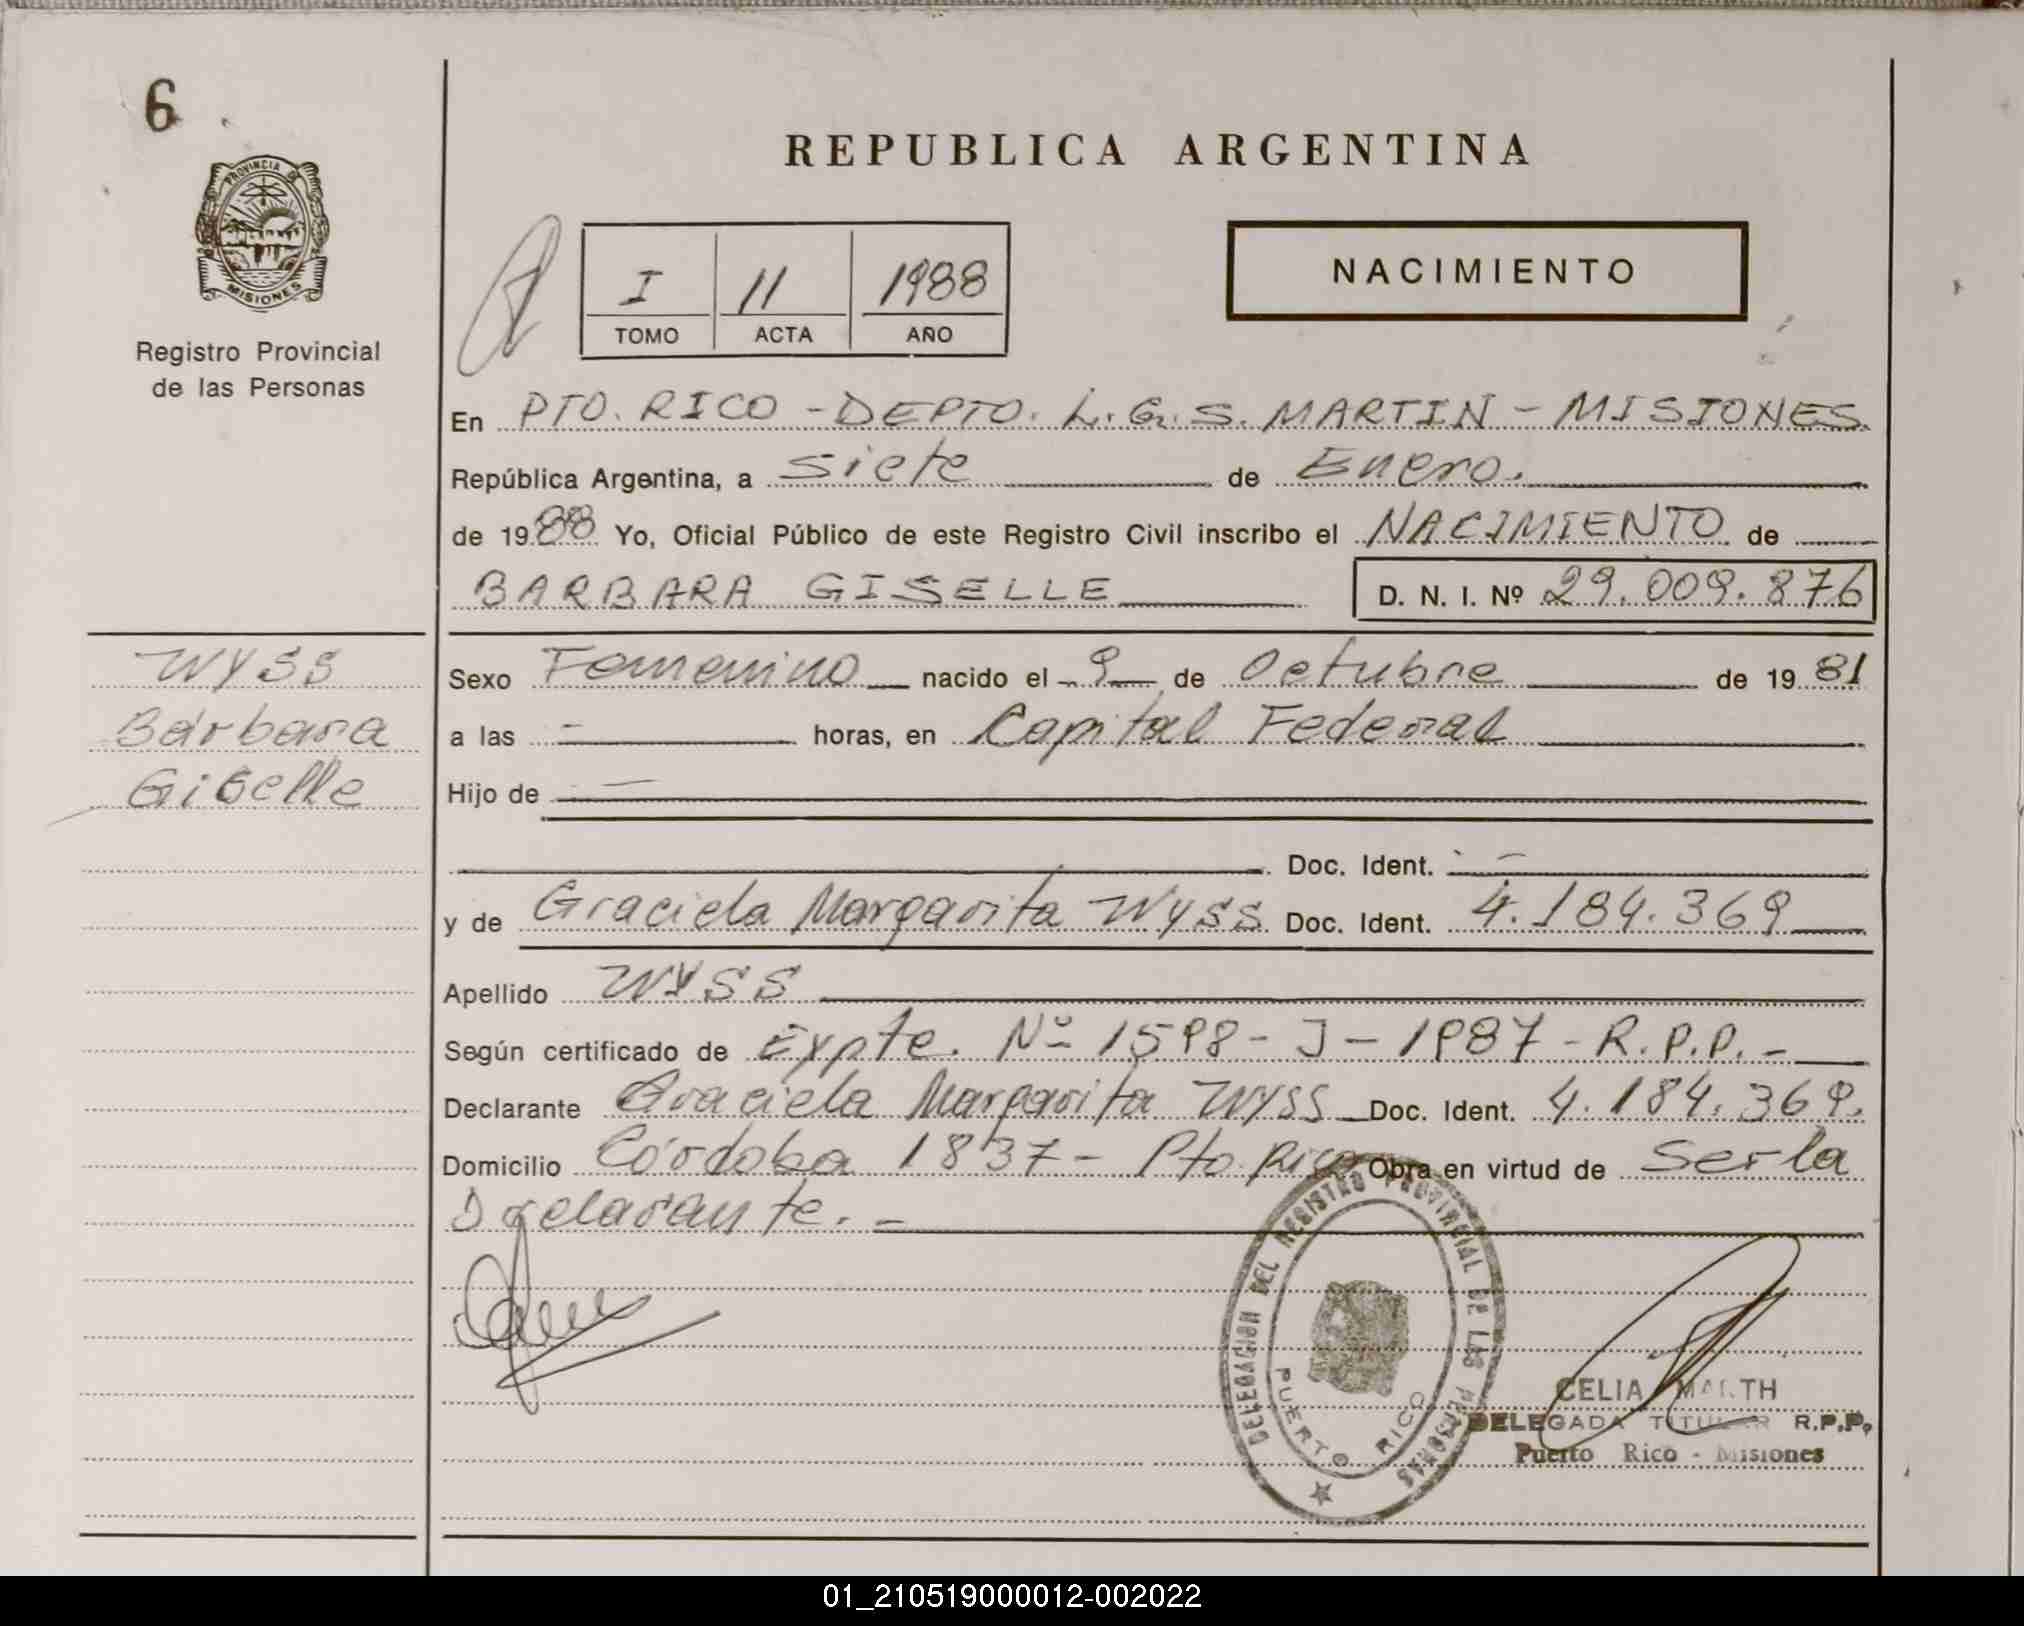 6
PROVINCIA DE
MISIONES
Registro Provincial
de las Personas
REPUBLICA ARGENTINA
I 11 1988
TOMO ACTA AÑO
NACIMIENTO
En PTO. RICO - DEPTO. L.G.S. MARTIN - MISIONES
República Argentina, a siete de Enero.
de 1988 Yo, Oficial Público de este Registro Civil inscribo el NACIMIENTO de
BARBARA GISELLE D. N. I. Nº 29.009.876
WYSS
Bárbara
Giselle
Sexo Femenino nacido el 9 de Octubre de 1981
a las - horas, en Capital Federal
Hijo de —
Doc. Ident. -
y de Graciela Margarita Wyss Doc. Ident. 4.184.369
Apellido WYSS
Según certificado de Expte. Nº 1598 - J - 1987 - R.P.P. -
Declarante Graciela Margarita Wyss Doc. Ident. 4.184.369.
Domicilio Córdoba 1837 - Pto. Rico Obra en virtud de Ser la
Declarante. -
DELEGACION DEL REGISTRO PROVINCIAL DE LAS PERSONAS
PUERTO RICO
CELIA MARTH
DELEGADA TITULAR R.P.P.
Puerto Rico - Misiones
01_210519000012-002022